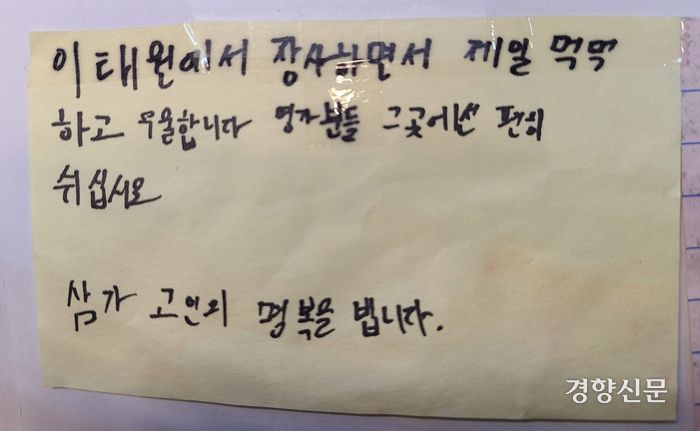 이태원에서 장사하면서 제일 먹먹
하고 우울합니다 영가분들 그곳에선 편히
쉬십시오
삼가 고인의 명복을 빕니다.
경향신문